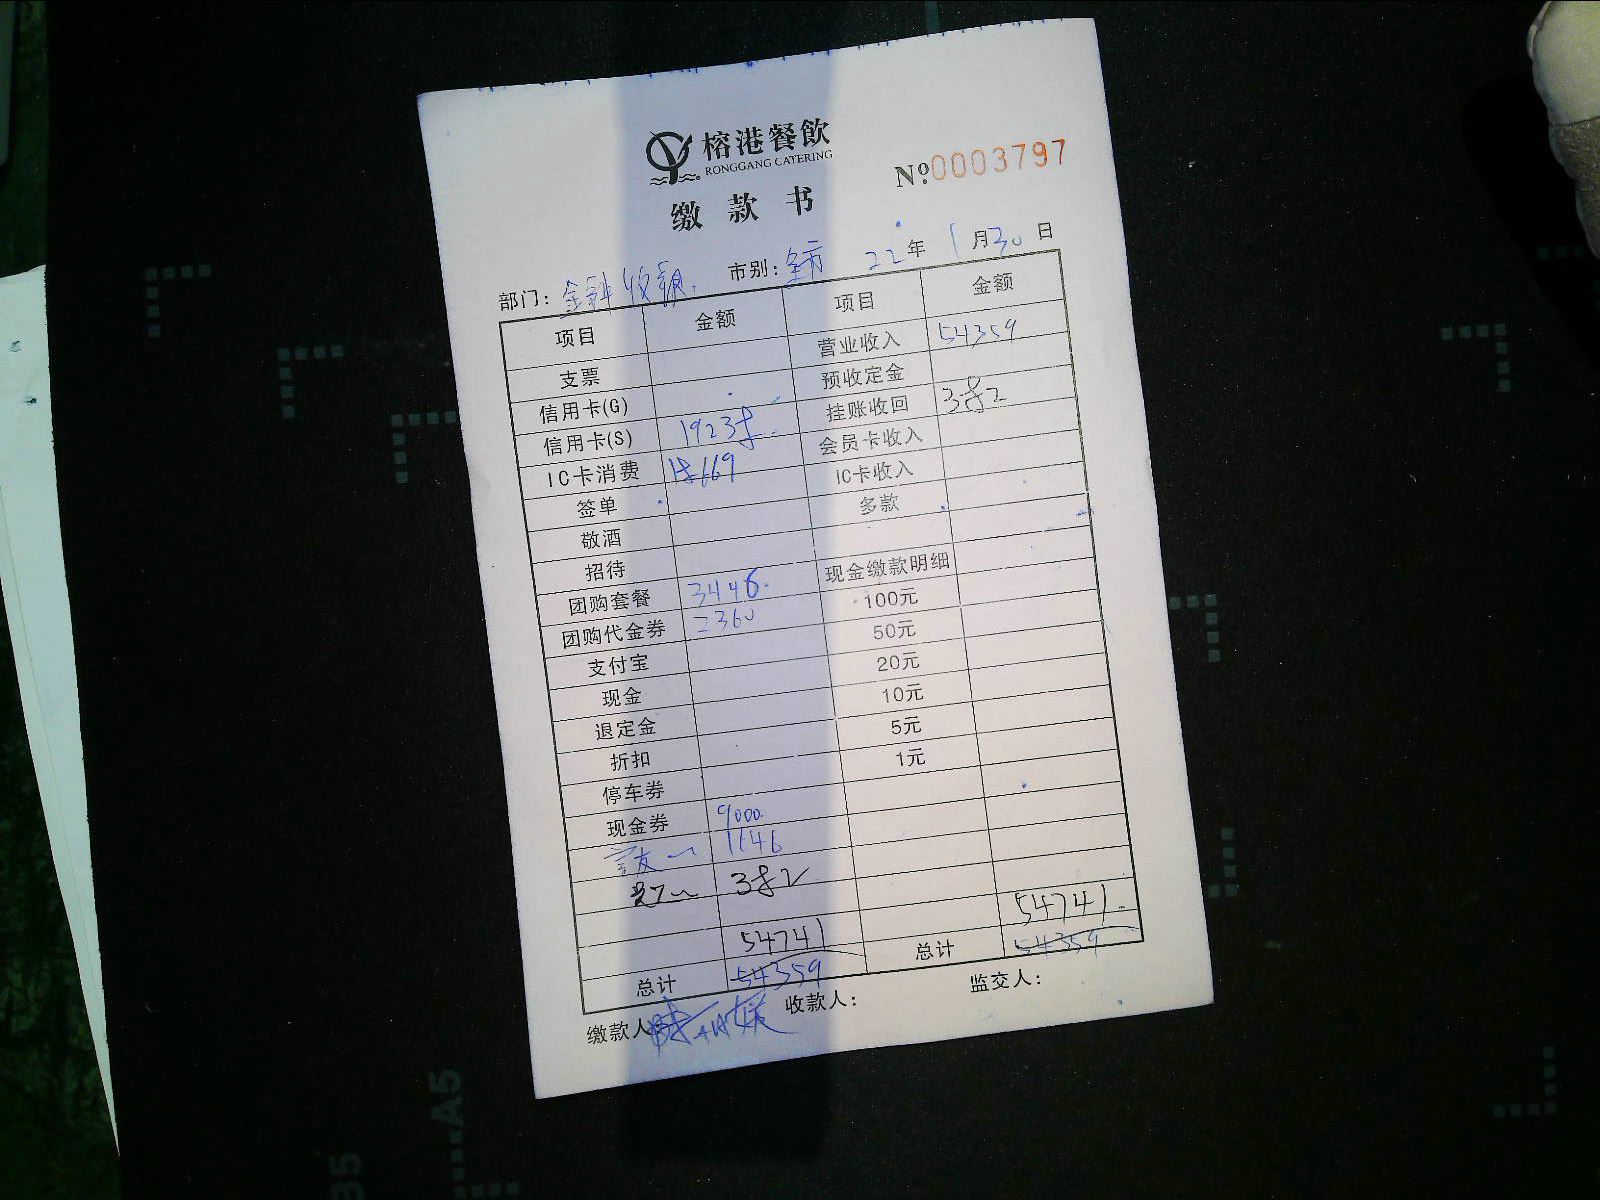 榕港餐飲
RONGGANG CATERING
Nº 0003797
缴款书
部门： 收银 市别：全市 22年1月30日
项目 金额 项目 金额
支票 营业收入 54359
信用卡(G) 预收定金
信用卡(S) 19238 挂账收回 382
IC卡消费 18669 会员卡收入
签单 IC卡收入
敬酒 多款
招待
团购套餐 3446 现金缴款明细
团购代金券 2360 100元
支付宝 50元
现金 20元
退定金 10元
折扣 5元
停车券 1元
现金券 9000
1646
382
54741 54741
总计 54359 总计 54359
缴款人： 收款人： 监交人：
A5
B5